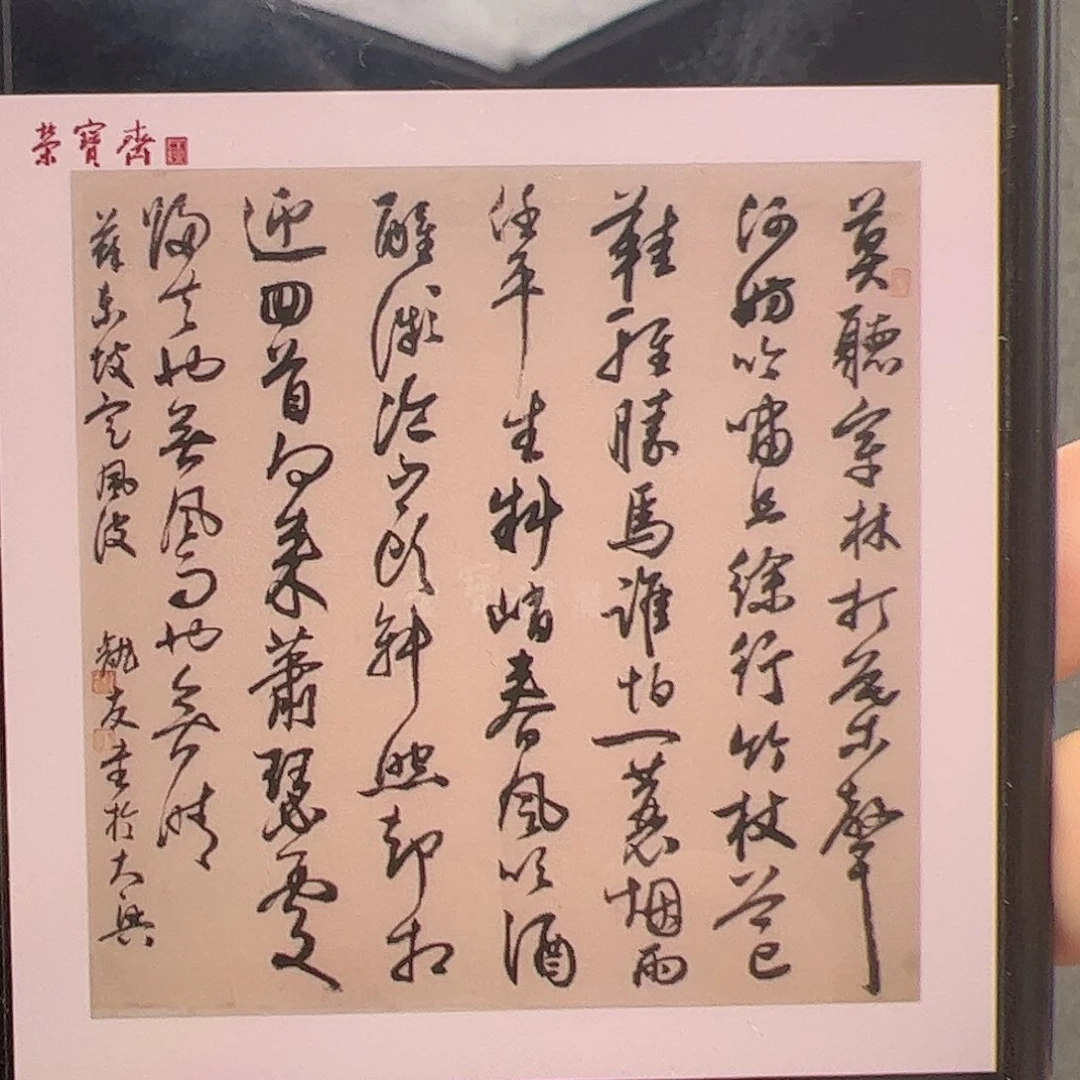 榮寶齋
莫聽穿林打葉聲
何妨吟嘯且徐行竹杖芒
鞋輕勝馬誰怕一蓑烟雨
任平生料峭春風吹酒
醒微冷山頭斜照却相
迎回首向來蕭瑟處
歸去也無風雨也無晴
蘇東坡定風波 友書於大興